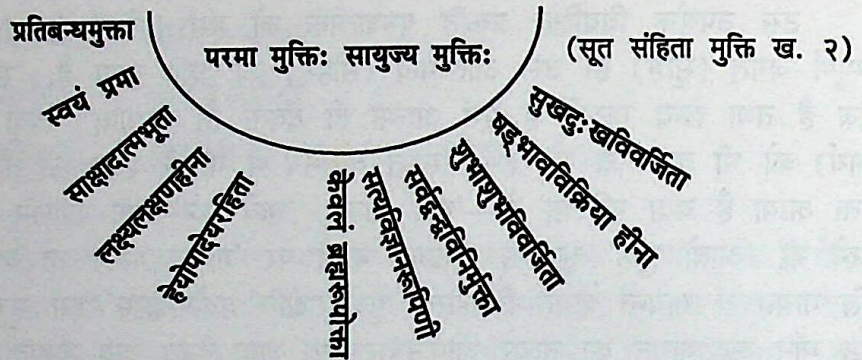 प्रतिबन्धमुक्ता
परमा मुक्तिः सायुज्य मुक्तिः
(सूत संहिता मुक्ति ख. २)
स्वयं प्रमा
साक्षादात्मभूता
लक्ष्यलक्षणहीना
हेयोपादेयरहिता
केवलं ब्रह्मरूपोक्ता
सत्यविज्ञानरूपिणी
सर्वद्वन्द्वविनिर्मुक्ता
शुभाशुभविवर्जिता
षड्भावविक्रिया हीना
सुखदुःखविवर्जिता